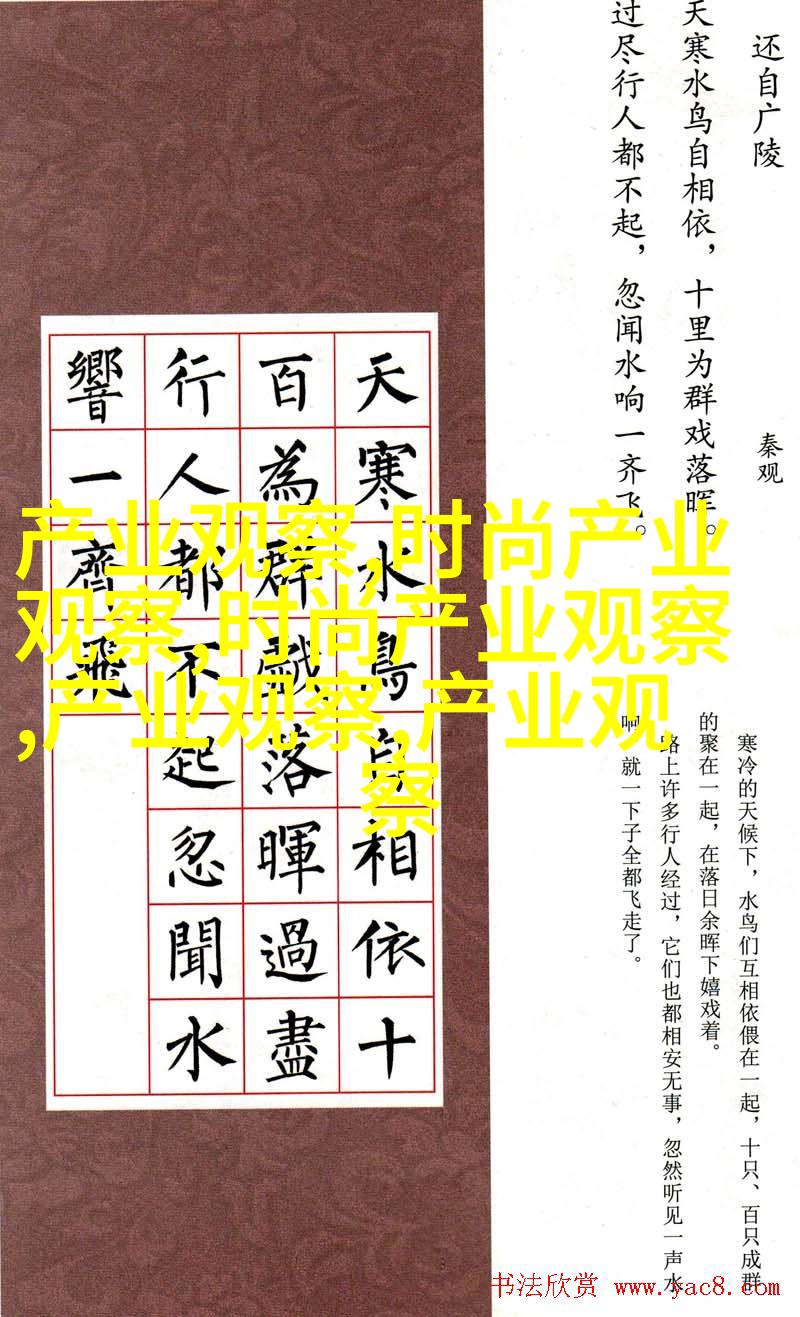 还自广陵
秦观
天寒水鸟自相依，十里为群戏落晖。
过尽行人都不起，忽闻水响一齐飞。
天寒水鳥自相依十
百為群戲落暉過盡
行人都不起忽聞水
響一齊飛
产业观察,时尚产业
观察,时尚产业观察
,产业观察,产业观
察
寒冷的天候下，水鸟们互相依偎在一起，十只、百只成群
的聚在一起，在落日余晖下嬉戏着。
路上许多行人经过，它们也都相安无事，忽然听见一声水
响，就一下子全都飞走了。
书法欣赏 www.yac8.com